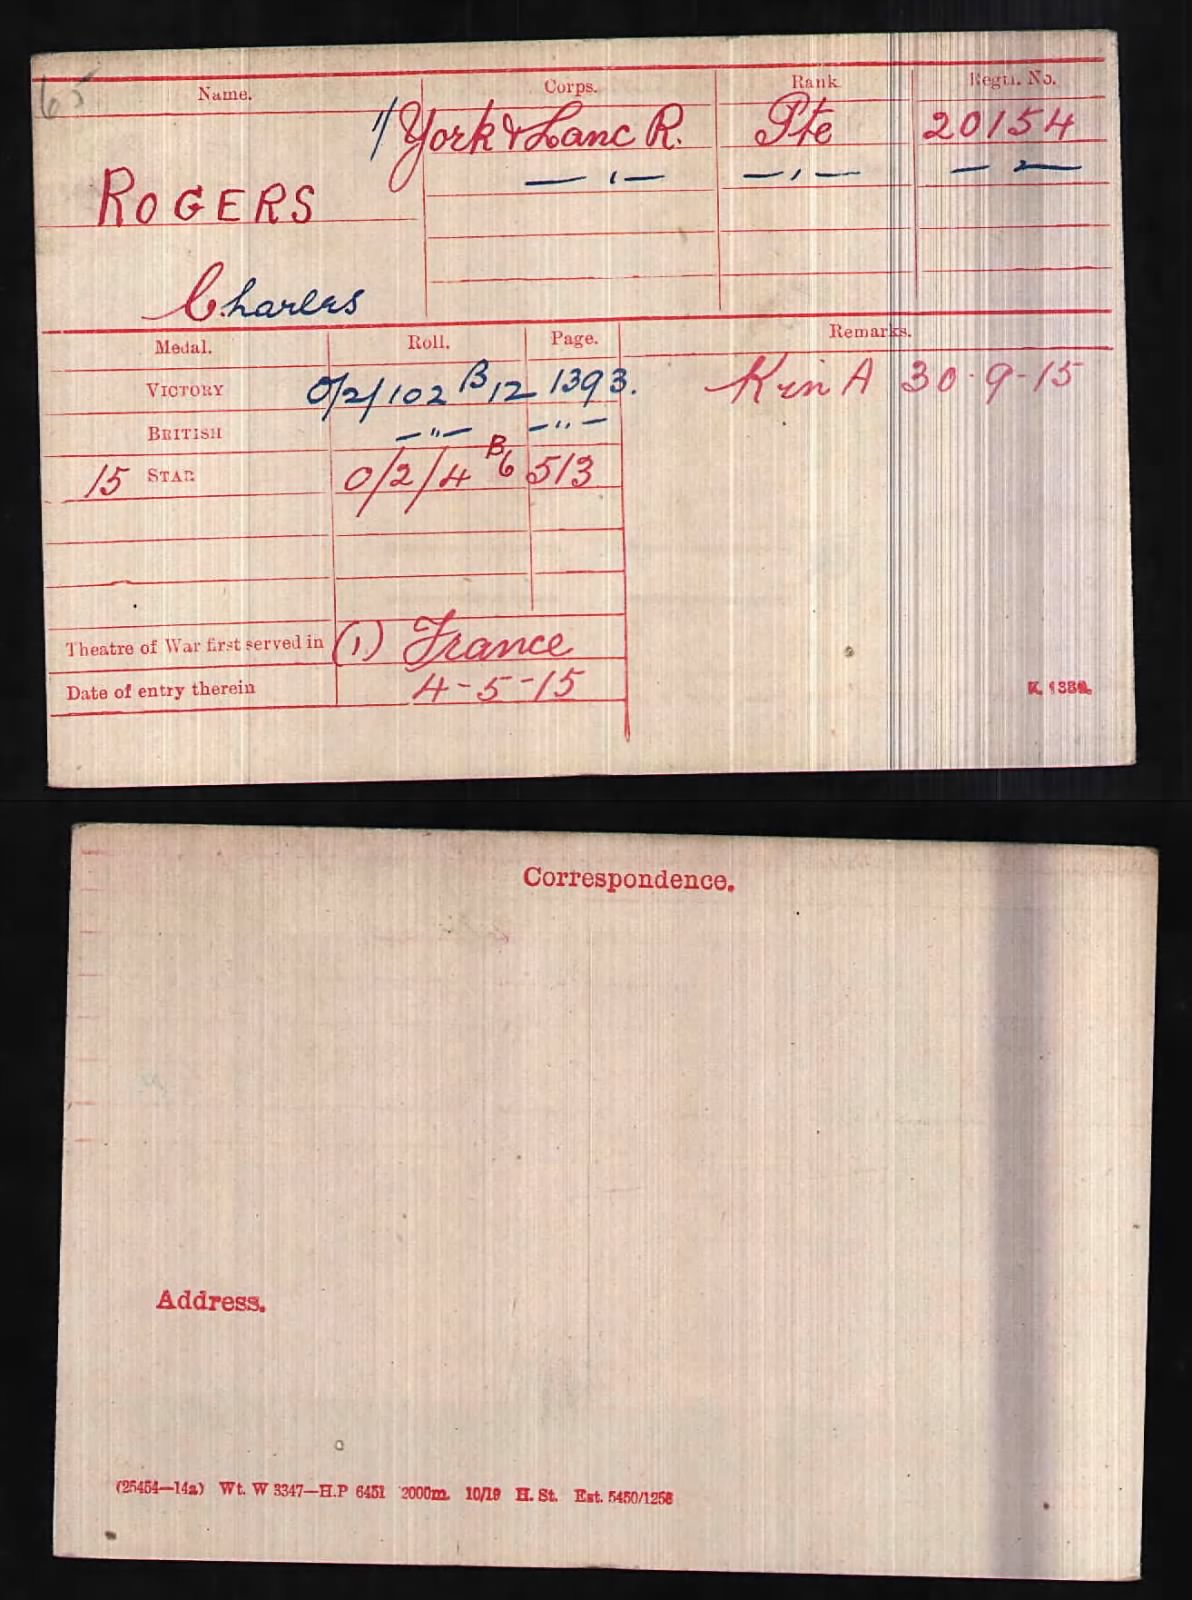 65
Name. Corps. Rank. Regtl. No.
1/ York & Lanc R. Pte 20154
— " — — " — — " —
ROGERS
Charles
Medal. Roll. Page. Remarks.
VICTORY O/2/102 B12 1393. K in A 30-9-15
BRITISH — " — — " —
15 STAR O/2/4 B6 513
Theatre of War first served in (1) France
Date of entry therein 4-5-15
K. 1380.
Correspondence.
Address.
(25454—14a) Wt. W 3347—H.P 6451 2000m. 10/19 H. St. Est. 5450/1256